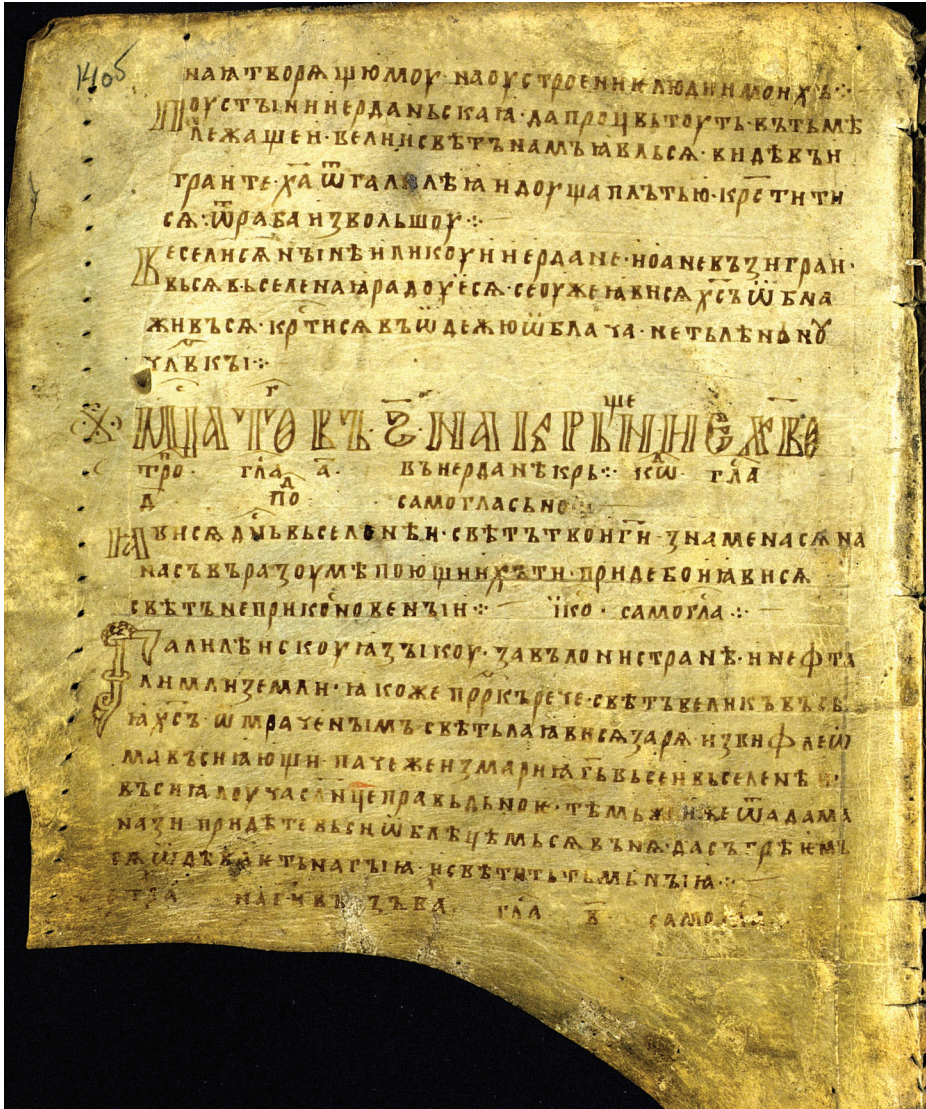 140б
наꙗ творѧщюмоу · на оустроѥниѥ людии моихъ ·:·
Поустыни иерданьскаꙗ · да процвьтоуть · въ тьмѣ
лежащеи · велии свѣтъ намъ ꙗвльсѧ · видѣвъ и
грѧите · ха ѿ галилѣꙗ и доуша плътью · крститі
сѧ · ѿ раба изволышоу ·:·
Веселисѧ нынѣ и ликоуи иердане · иоане възиграи ·
вьсѧ вьселенаꙗ радоуесѧ · се оуже ꙗвисѧ хсъ ѡбна
живъсѧ · кртисѧ въ ѡдежю ѡблача · нетьлѣноую
члвкы ·:·
мца тогⷪ въ · ꙁ · на крьщение хво
тро · гла · а · въ иерданѣ кръ ·:· кѡⷣ гла
д поⷣ самогласьно
Ꙗвисѧ дньвьселенѣи · свѣтъ твои ги · знаменасѧ на
насъ въ разоумѣ поющиихъ ти · приде бо и ꙗвисѧ
свѣтъ неприкосновеныи ·:· їко · самогла ·:·
Галилѣискоу ꙗзыкоу · завълони странѣ · и нефта
лимли земли · ꙗкоже прркъ рече · свѣтъ великъ въсь
ꙗ хсъ · ѡмраченымъ свѣтьла ꙗвисѧ зарѧ · из вифлеѡ
ма въсиꙗющи · паче же из мариꙗ гь вьсеи вьселенѣ
въсиꙗ лоуча слнце правьдьною · тѣмь же иже ѿ адама
назии придѣте вьси ѡблѣцѣмьсѧ въ нь · да съгрѣѥмъ
сѧ ѡдѣваѥть нагыꙗ · и свѣтить тьмьныꙗ ·:·
гла в само